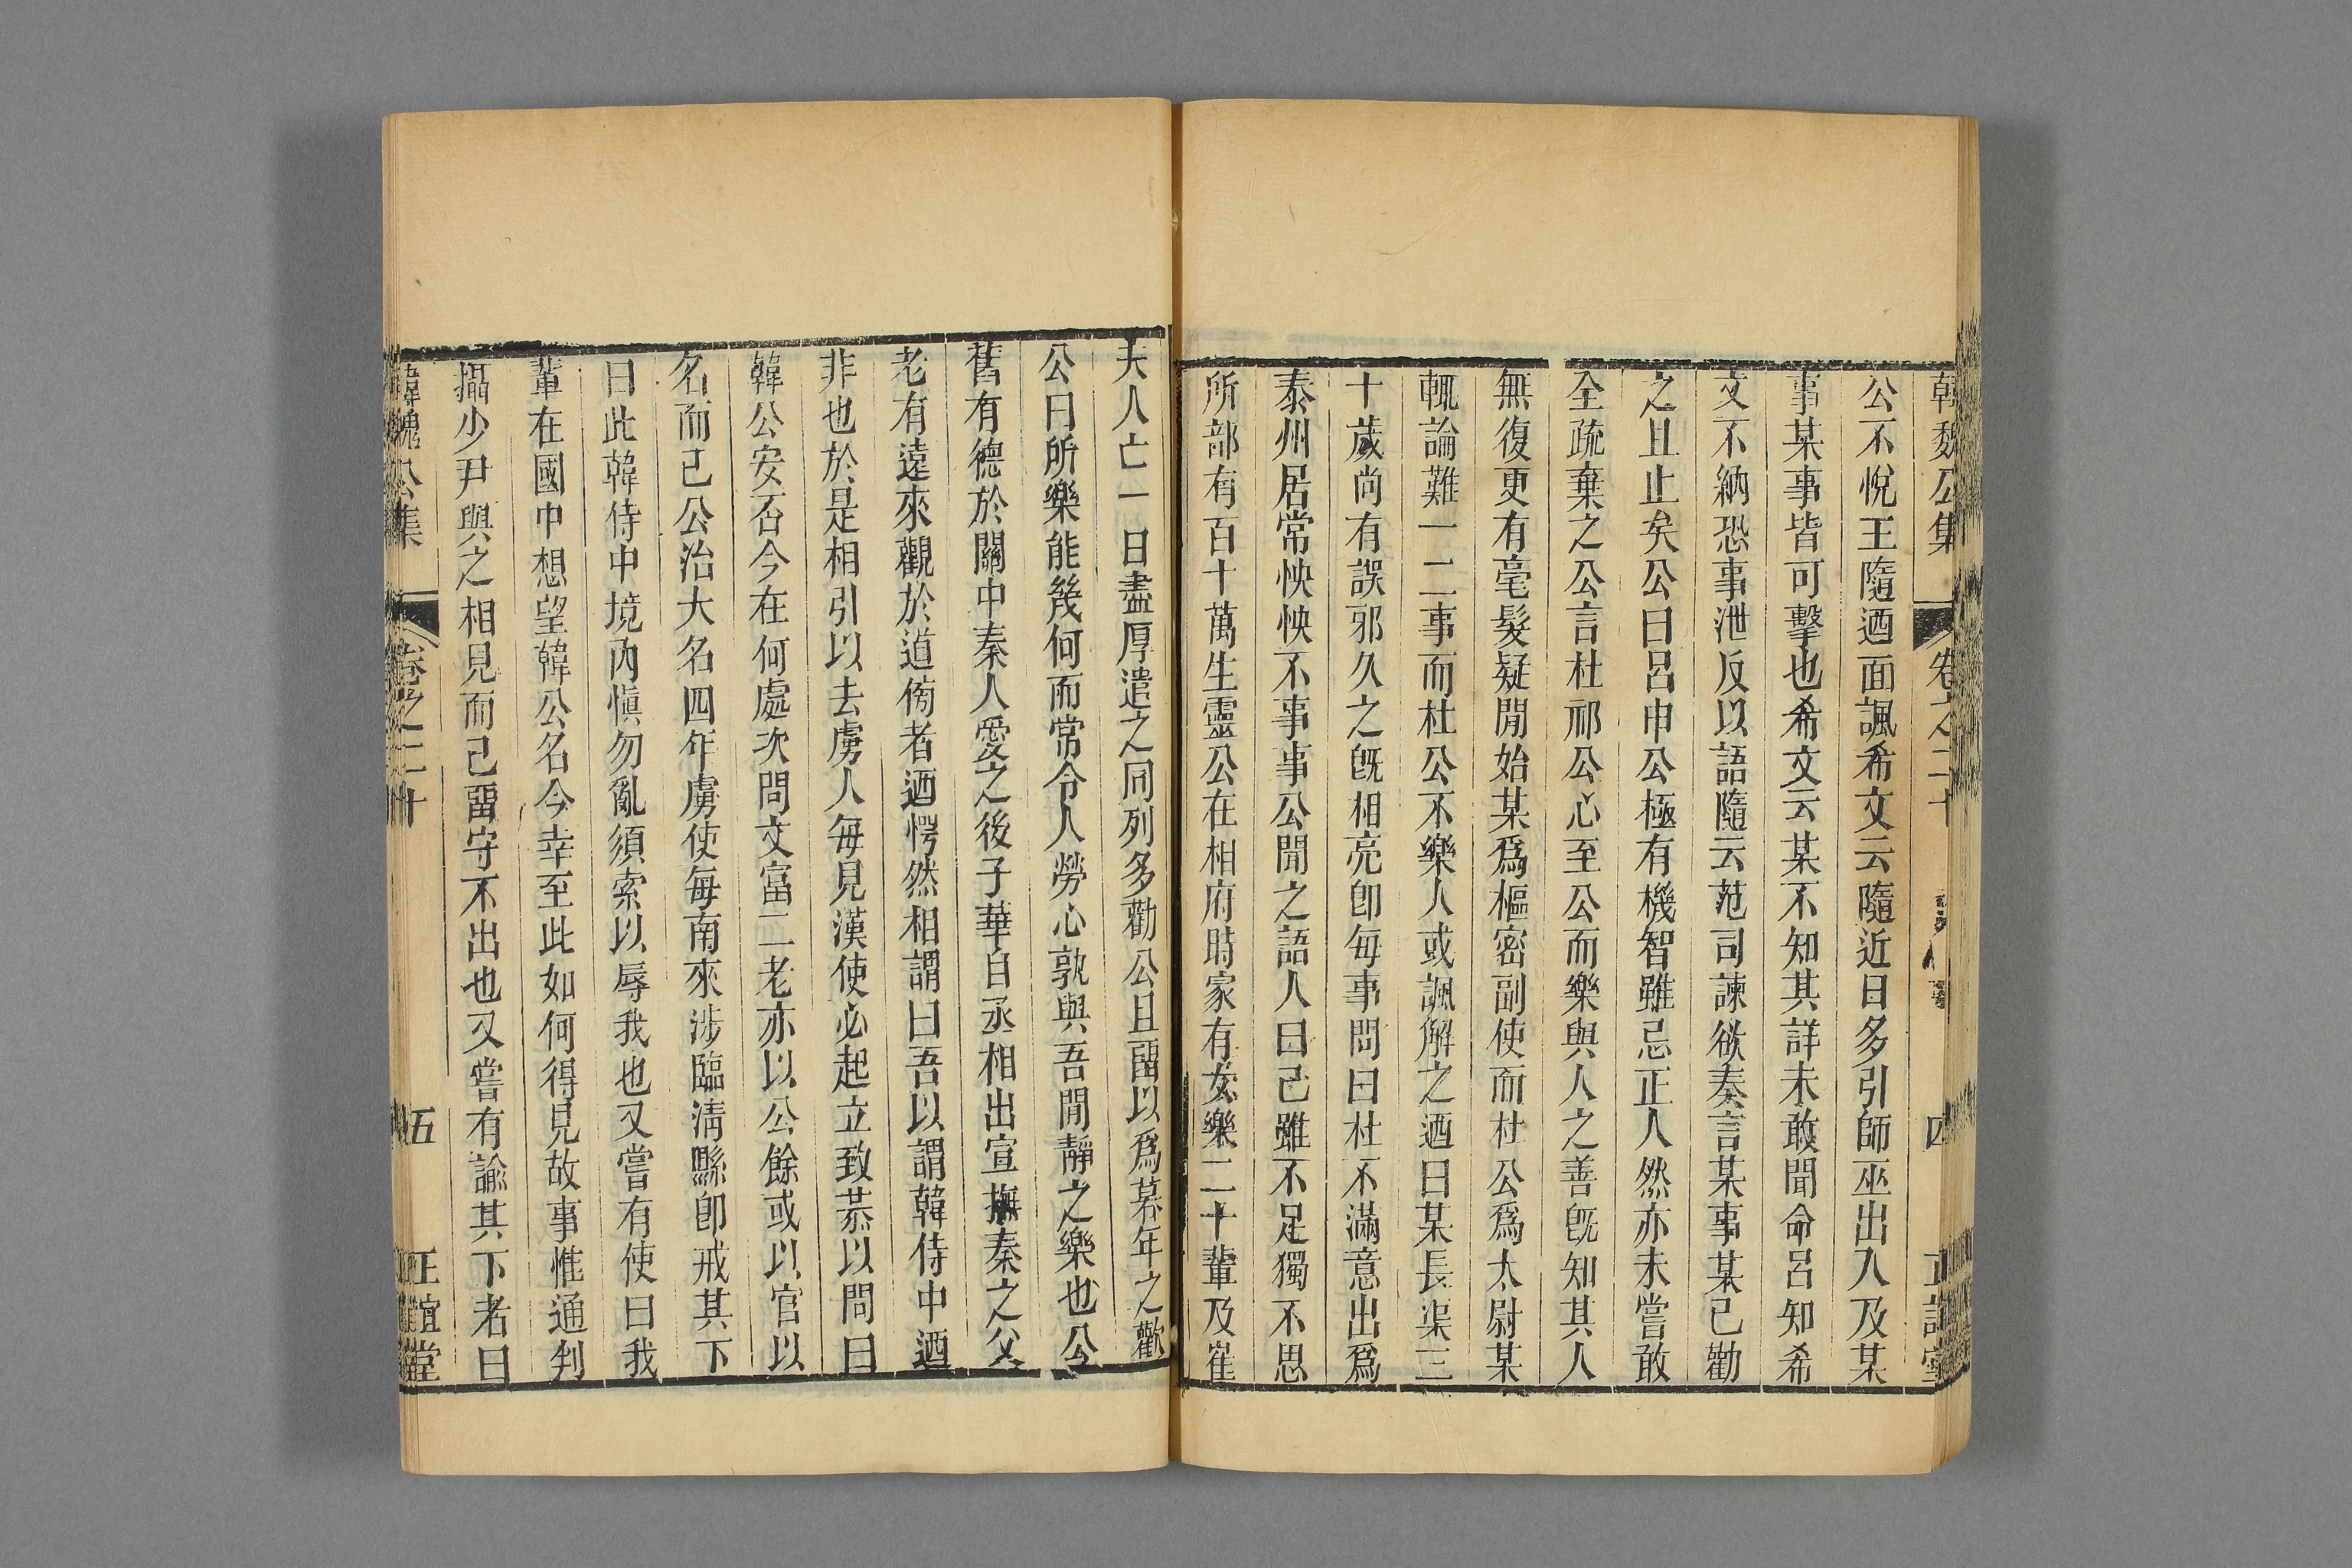 韓魏公集 卷之二十 四 正誼堂
公不悅王隨迺面諷希文云隨近日多引師巫出入及某
事某事皆可擊也希文云某不知其詳未敢聞命呂知希
文不納恐事泄反以語隨云范司諫欲奏言某事某已勸
之且止矣公曰呂申公極有機智雖忌正人然亦未嘗敢
全疏棄之公言杜祁公心至公而樂與人之善旣知其人
無復更有毫髮疑閒始某爲樞密副使而杜公爲太尉某
輒論難一二事而杜公不樂人或諷解之迺曰某長渠三
十歲尚有誤邪久之旣相亮卽每事問曰杜不滿意出爲
泰州居常怏怏不事事公聞之語人曰己雖不足獨不思
所部有百十萬生靈公在相府時家有女樂二十輩及崔
夫人亡一日盡厚遣之同列多勸公且畱以爲暮年之歡
公曰所樂能幾何而常令人勞心孰與吾閒靜之樂也公
舊有德於關中秦人愛之後子華自丞相出宣撫秦之父
老有遠來觀於道傍者迺愕然相謂曰吾以謂韓侍中迺
非也於是相引以去虜人每見漢使必起立致恭以問曰
韓公安否今在何處次問文富二老亦以公餘或以官以
名而已公治大名四年虜使每南來涉臨淸縣卽戒其下
曰此韓侍中境內愼勿亂須索以辱我也又嘗有使曰我
輩在國中想望韓公名今幸至此如何得見故事惟通判
攝少尹與之相見而已畱守不出也又嘗有諭其下者曰
韓魏公集 卷之二十 五 正誼堂